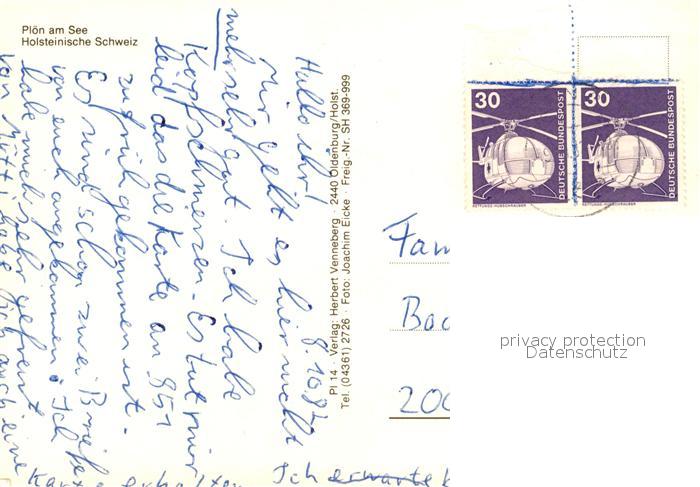 Plön am See
Holsteinische Schweiz
8.10.82
Hallo ihr!
Mir geht es hier nicht
mehr sehr gut. Ich habe
Kopfschmerzen. Es tut mir
leid das die Karte an 851
zu früh gekommen ist.
Es sind schon zwei Briefe
von euch angekommen. Ich
habe mich sehr gefreut
auch eine
Karte erhalten Ich erwarte
Pl 14 · Verlag: Herbert Venneberg · 2440 Oldenburg/Holst.
Tel. (04361) 2726 · Foto: Joachim Eicke · Freig.-Nr. SH 369-999
30
DEUTSCHE BUNDESPOST
RETTUNGS-HUBSCHRAUBER
30
DEUTSCHE BUNDESPOST
RETTUNGS-HUBSCHRAUBER
Fam
200
privacy protection
Datenschutz